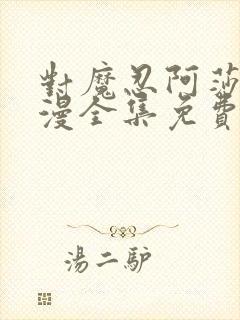 對魔忍阿莎
漫全集免費
湯二馿